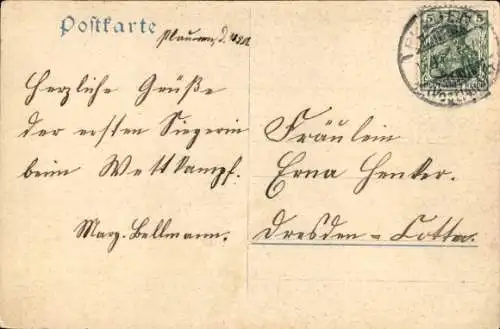 Postkarte
Plauen, d.
Herzliche Grüße
der ersten Siegerin
beim Wettkampf.
Marg. Bellmann.
Fräulein
Erna Henker.
Dresden=Cotta.
5 5